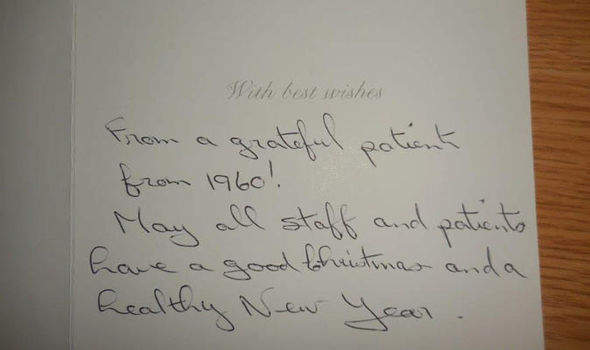 With best wishes
From a grateful patient
from 1960!
May all staff and patients
have a good Christmas and a
healthy New Year.